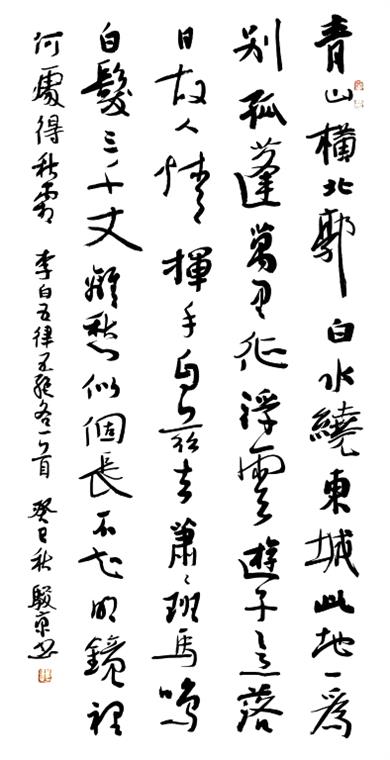 青山橫北郭白水繞東城此地一為
別孤蓬萬里征浮雲遊子意落
日故人情揮手自茲去蕭々班馬鳴
白髮三千丈離愁似個長不知明鏡裡
何處得秋霜 李白五律五絕各一首 癸巳秋 駿京書